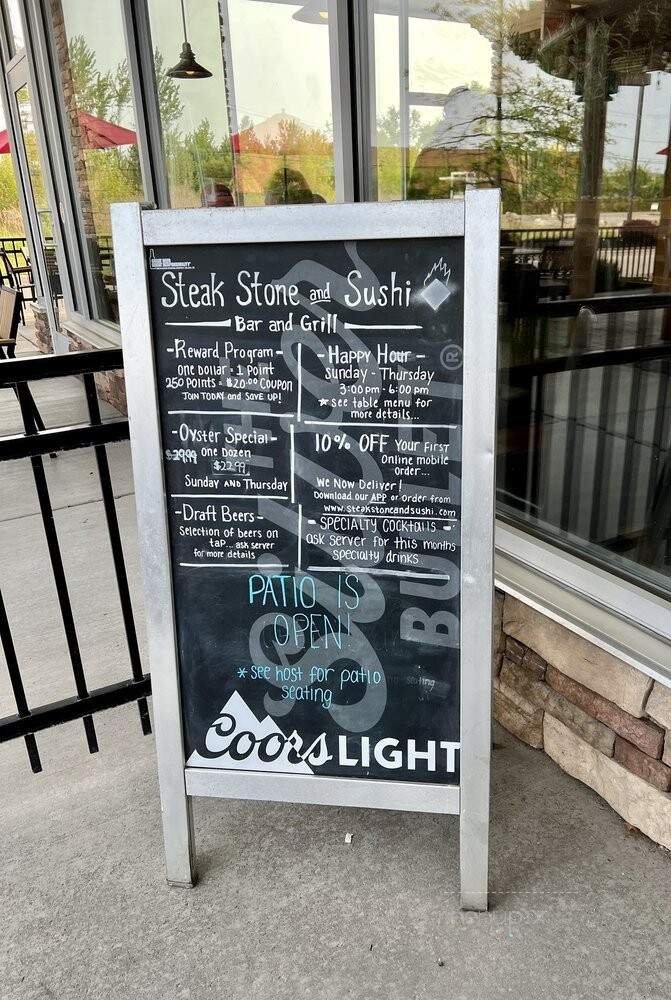 Steak Stone and Sushi
Bar and Grill
-Reward Program-
one dollar = 1 Point
250 Points = $20.00 Coupon
Join today and save up!
-Happy Hour-
Sunday - Thursday
3:00pm - 6:00pm
*see table menu for
more details...
-Oyster Special-
$29.99 one Dozen
$22.99
Sunday and Thursday
10% OFF your first
online mobile
order...
We Now Deliver!
Download our APP or order from
www.steakstoneandsushi.com
-Draft Beers-
Selection of beers on
tap... ask server
for more details
-Specialty Cocktails-
ask server for this months
specialty drinks
PATIO IS
OPEN!
*see host for patio
seating
seating
THE
Silver
BULLET®
Coors LIGHT